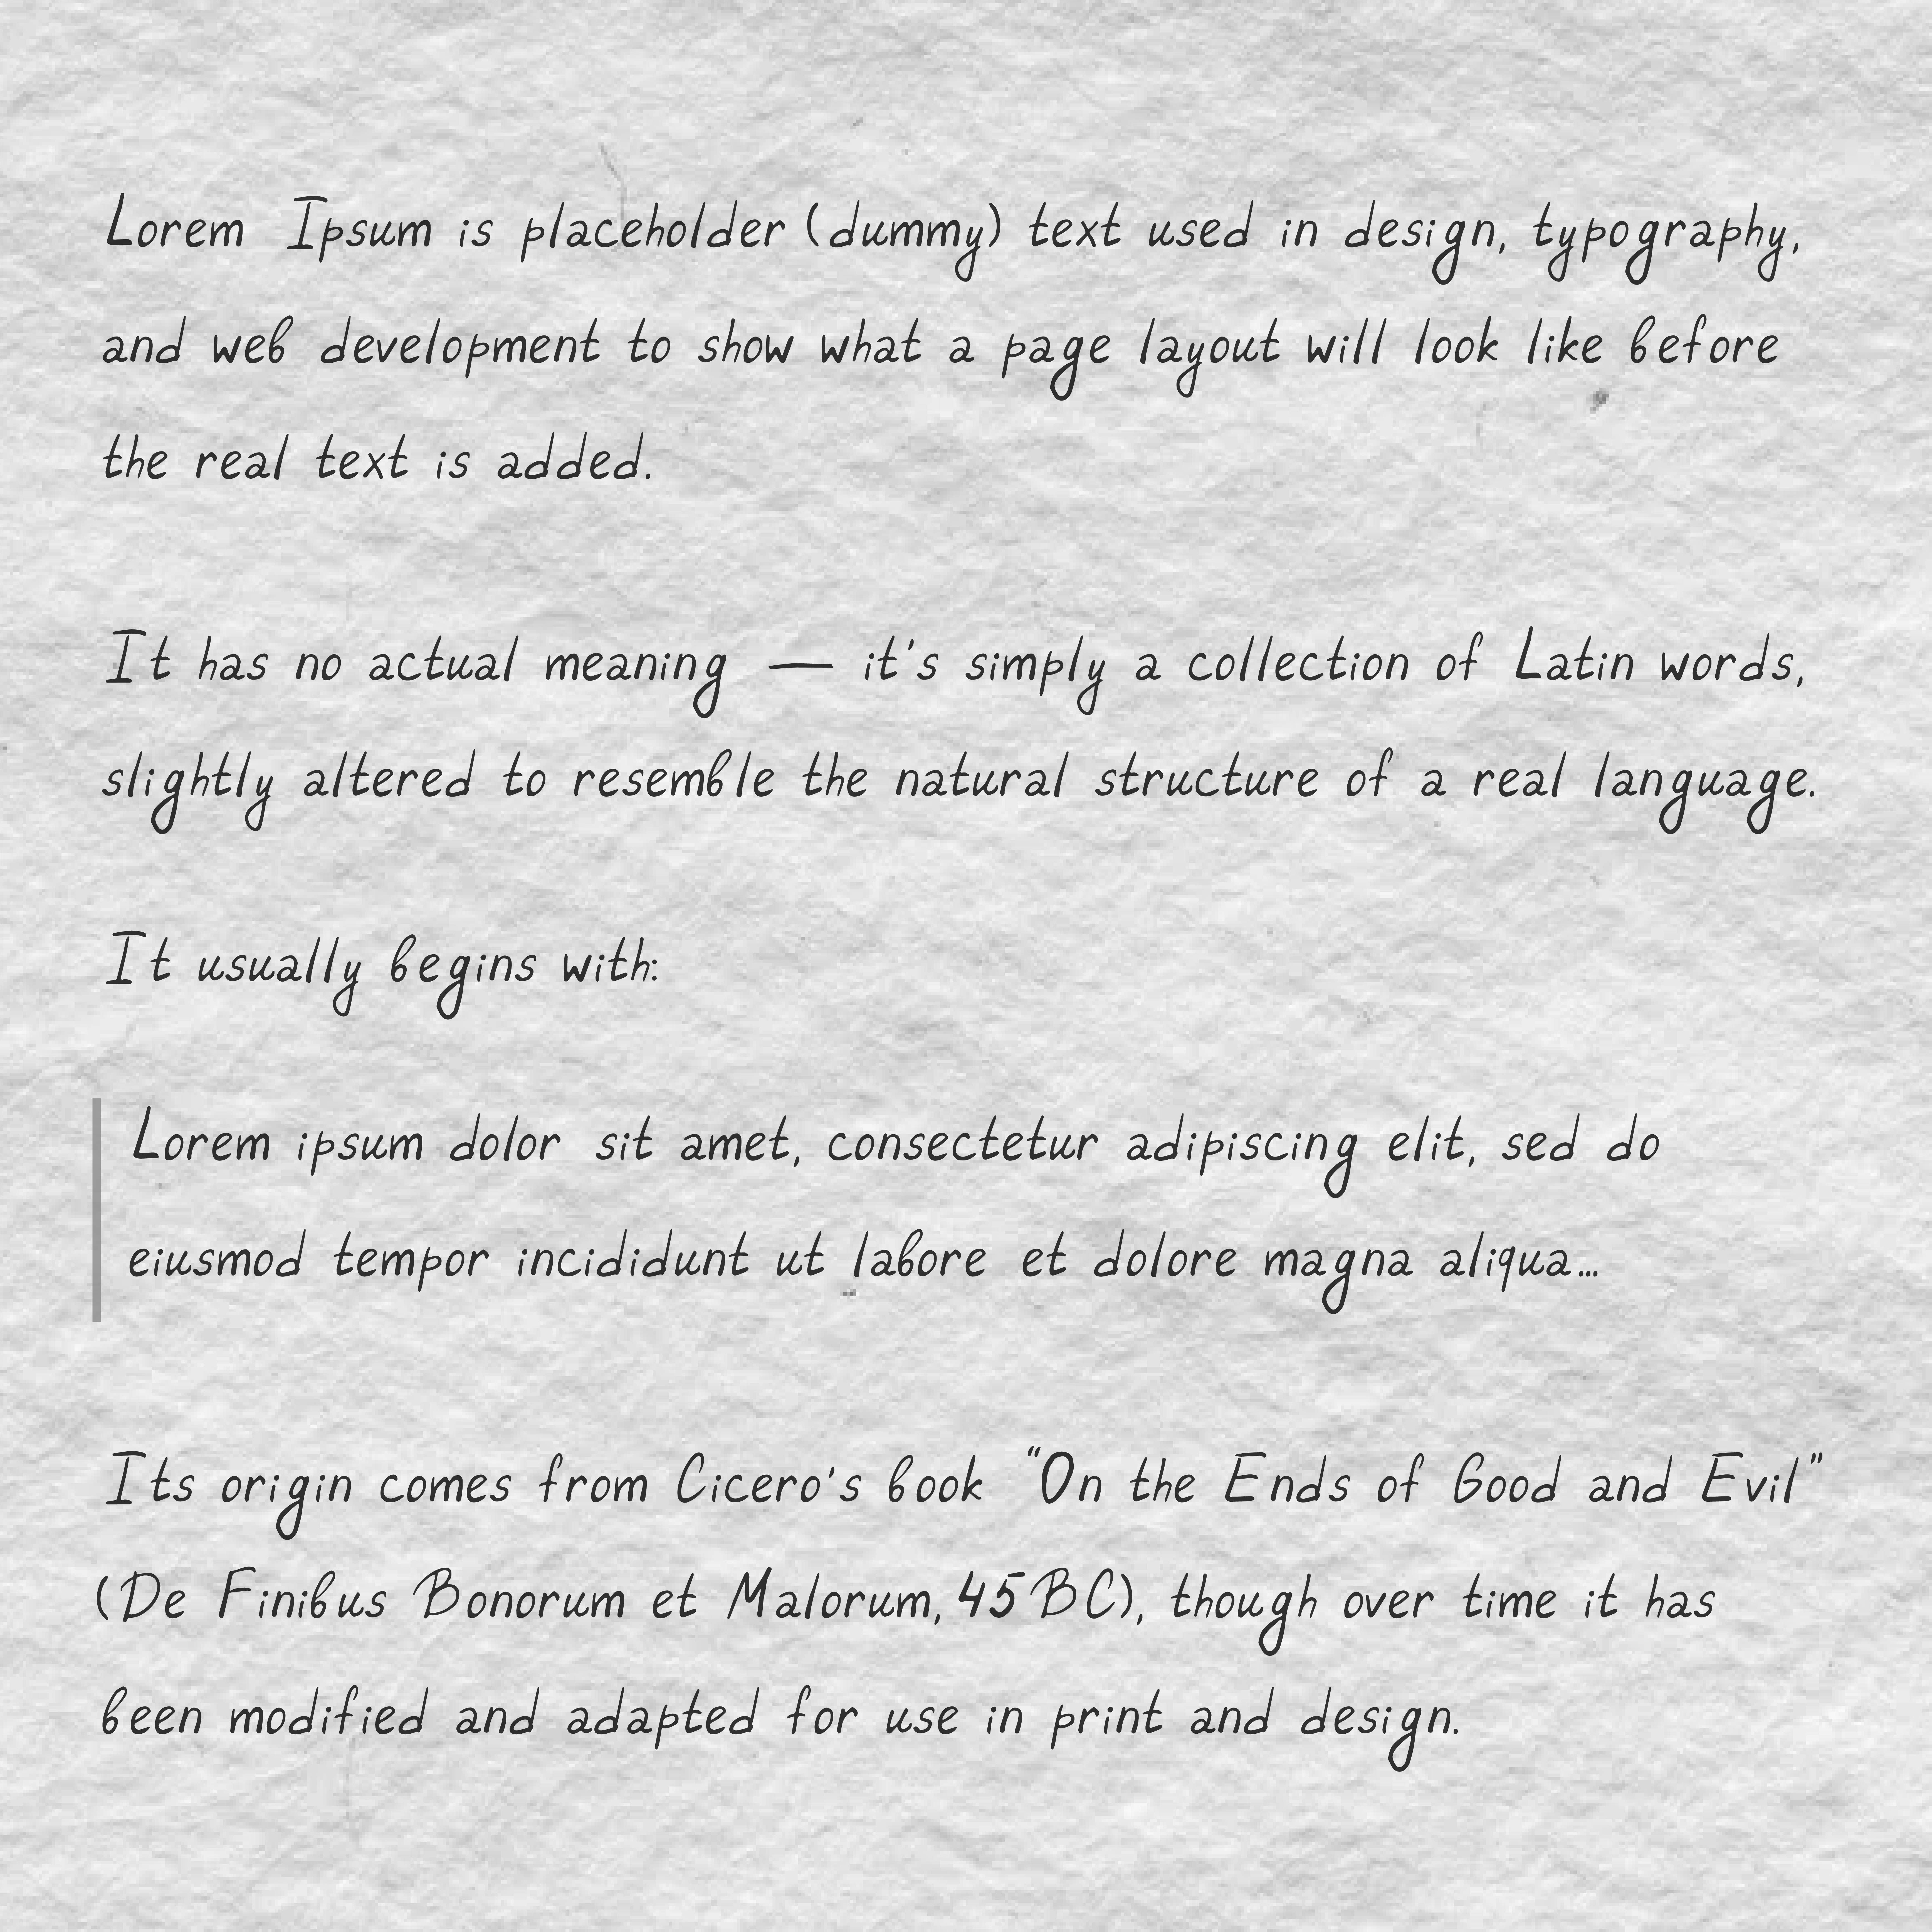 Lorem Ipsum is placeholder (dummy) text used in design, typography,
and web development to show what a page layout will look like before
the real text is added.
It has no actual meaning — it's simply a collection of Latin words,
slightly altered to resemble the natural structure of a real language.
It usually begins with:
Lorem ipsum dolor sit amet, consectetur adipiscing elit, sed do
eiusmod tempor incididunt ut labore et dolore magna aliqua...
Its origin comes from Cicero's book "On the Ends of Good and Evil"
(De Finibus Bonorum et Malorum, 45 BC), though over time it has
been modified and adapted for use in print and design.